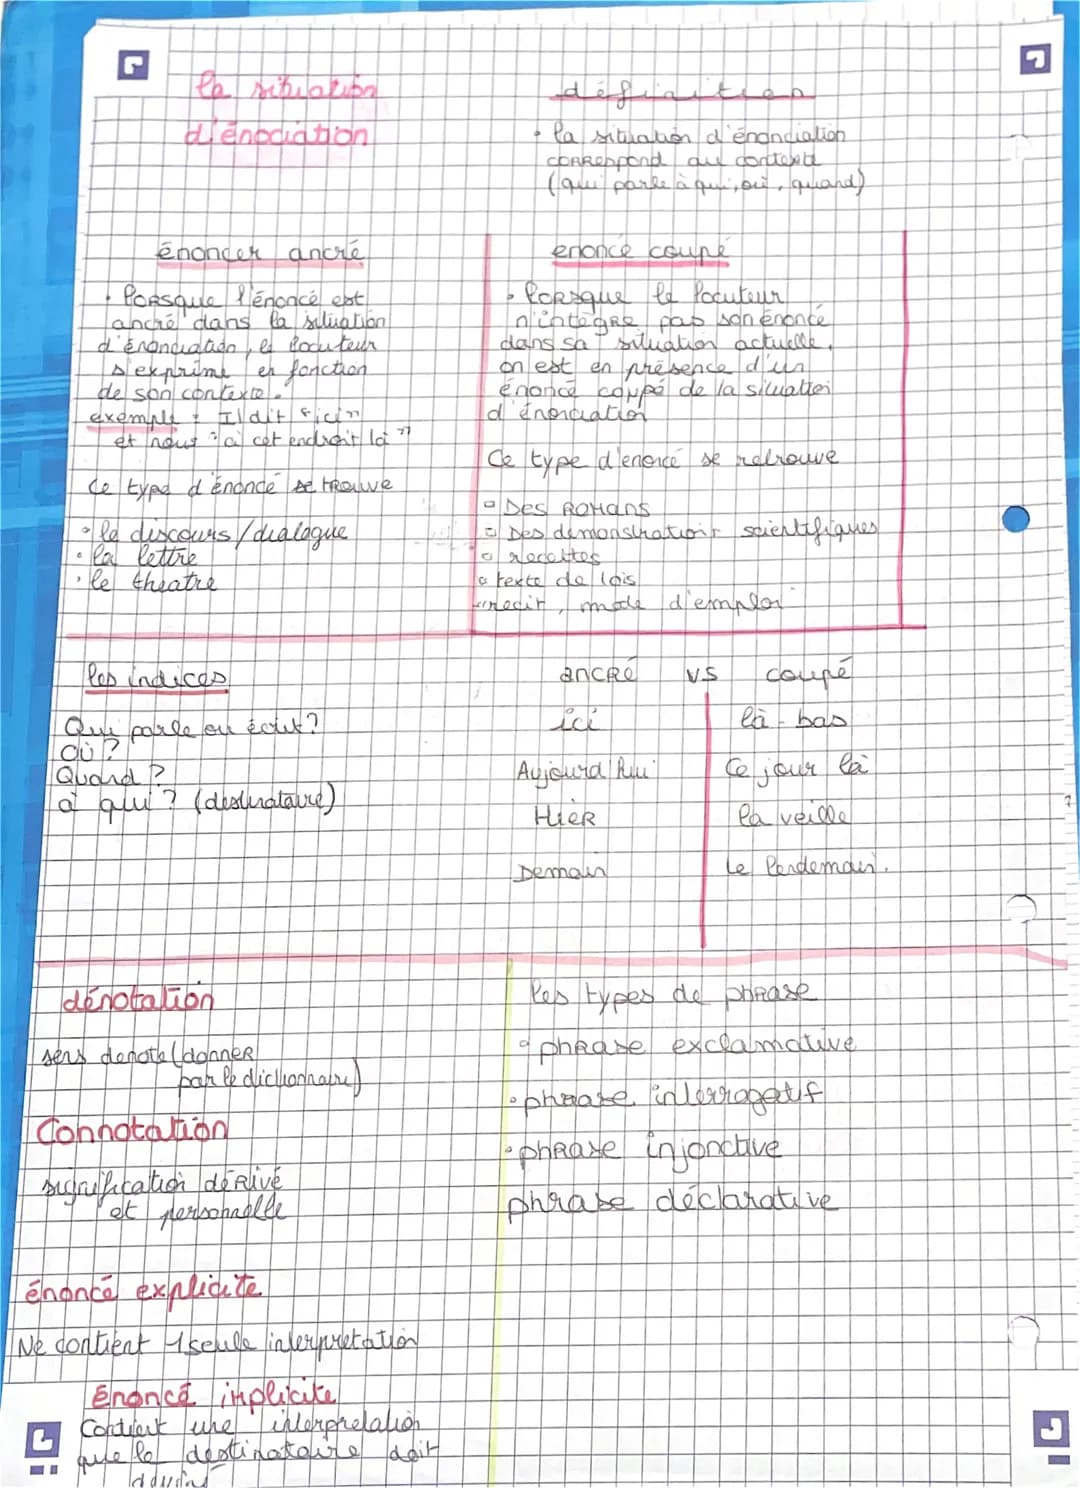 la situation
d'énociation
définition
• la situation d'énonciation
correspond au contexte
(qui parle à qui, où, quand)
énoncer ancré
• lorsque l'énoncé est
ancré dans la situation
d'énonciation, le locuteur
s'exprime en fonction
de son contexte.
exemple : Il dit "ici"
et nous "à cet endroit là"
Ce type d'énoncé se trouve
• le discours/dialogue
• la lettre
• le theatre
enonce coupé
• lorsque le locuteur
n'intègre pas son énoncé
dans sa situation actuelle,
on est en présence d'un
énoncé coupé de la situation
d'énonciation
Ce type d'enoncé se retrouve
Des Romans
Des démonstrations scientifiques
recettes
texte de lois
recit, mode d'emploi
les indices
Qui parle ou écrit?
Où?
Quand?
à qui? (destinataire)
ancré vs coupé
ici là-bas
Aujourd'hui Ce jour là
Hier la veille
Demain Le lendemain.
dénotation
sens denoté (donner
par le dictionnaire)
Connotation
signification dérivé
et personnelle
énoncé explicite
Ne contient 1 seule interpretation
Énoncé implicite
Contient une interprelation
que le destinataire doit
les types de phrase
• phrase exclamative
• phrase interrogatif
• phrase injonctive
phrase déclarative